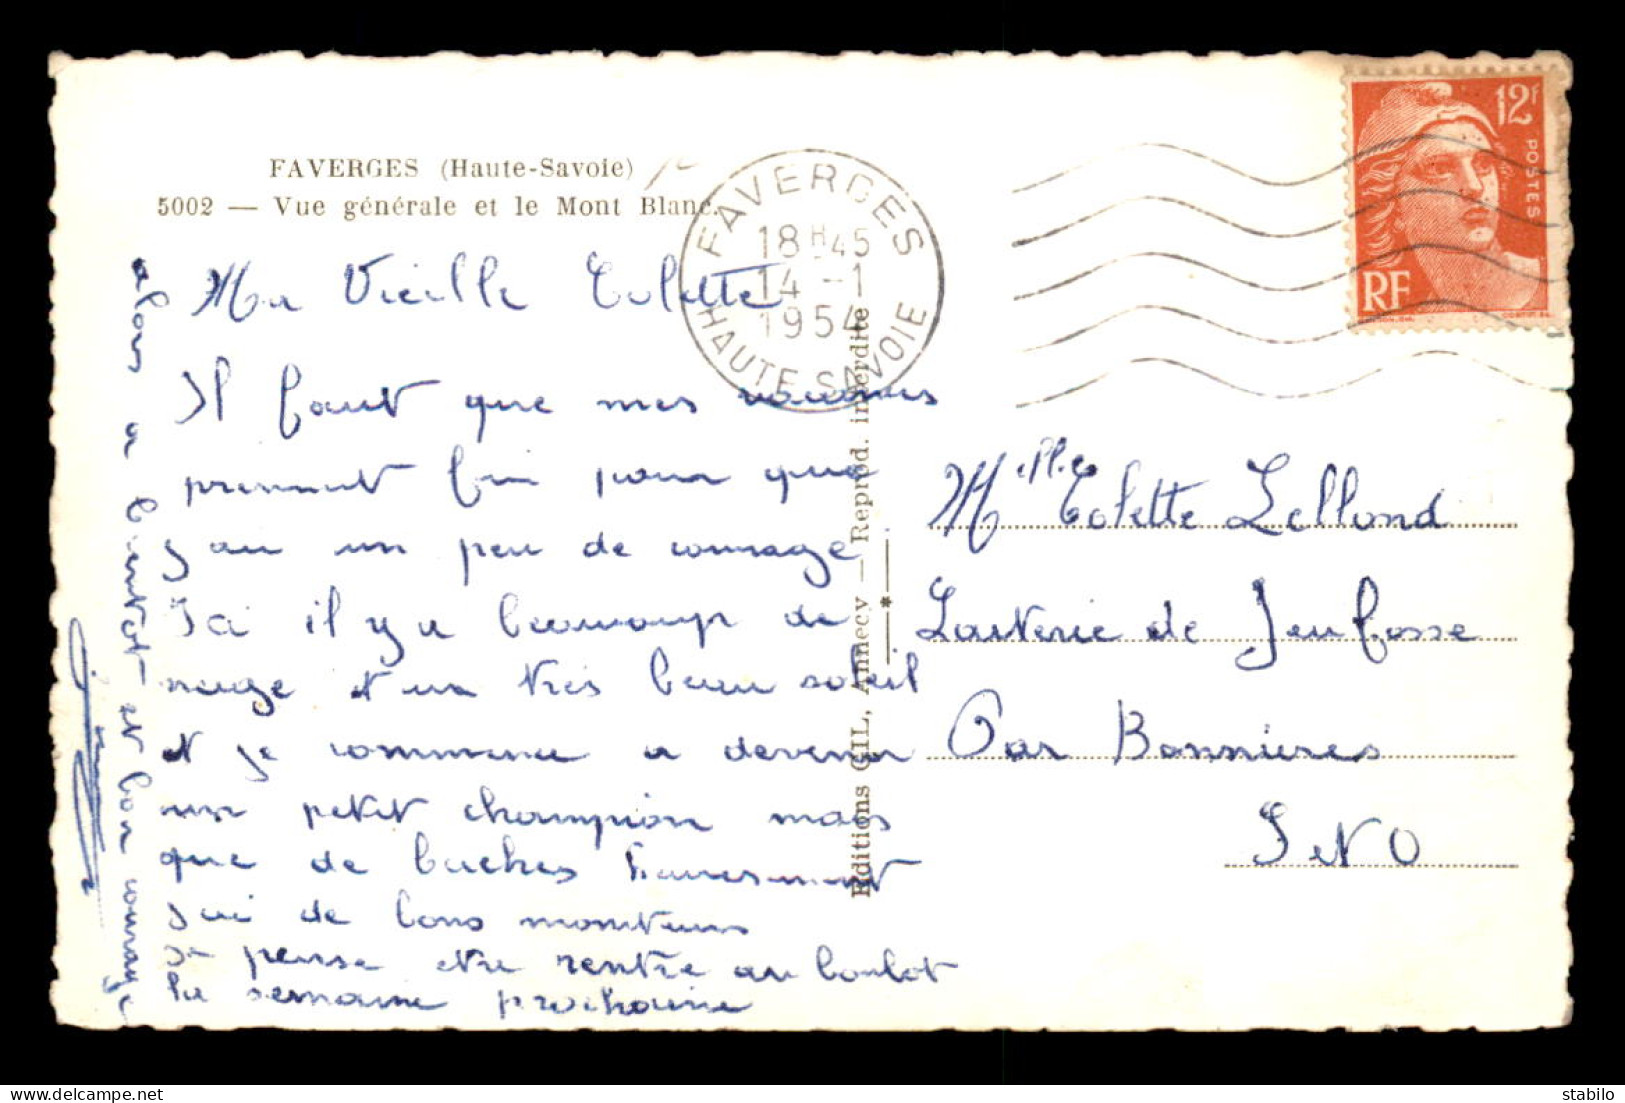 FAVERGES (Haute-Savoie)
5002 — Vue générale et le Mont Blanc.
FAVERGES
18 H 45
14 - 1
1954
HAUTE-SAVOIE
12F
POSTES
RF
Ma Vieille Colette
Il faut que mes vacances
prennent fin pour que
j'au un peu de courage
Ici il y a beaucoup de
neige et un très beau soleil
et je commence a devenir
un petit champion mais
que de buches heureusement
j'ai de bons moniteurs
Je pense etre rentré au boulot
la semaine prochaine
alors a bientot et bon courage
Editions GIL, Annecy — Reprod. interdite
Melle Colette Lellond
Laiterie de Jeufosse
Par Bonnieres
S et O
delcampe.net
stabylo